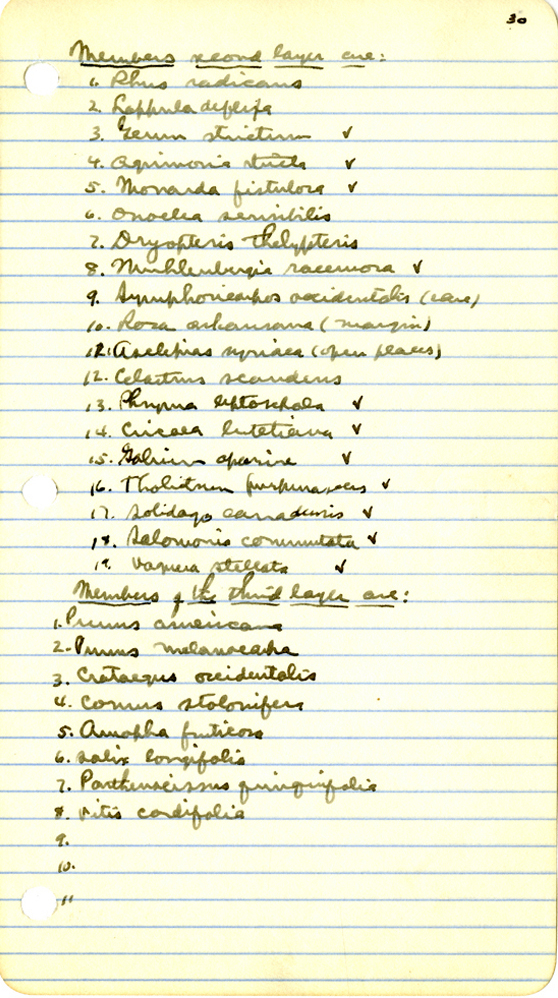 30
Members second layer are:
1. Rhus radicans
2. Lappula deflexa
3. Geum strictum ✓
4. Agrimonia stricta ✓
5. Monarda fistulosa ✓
6. Onoclea sensibilis
7. Dryopteris thelypteris
8. Muhlenbergia racemosa ✓
9. Symphoricarpos occidentalis (rare)
10. Rosa arkansana (margin)
11. Asclepias syriaca (open places)
12. Celastrus scandens
13. Phryma leptostachya ✓
14. Circaea lutetiana ✓
15. Galium aparine ✓
16. Thalictrum purpurascens ✓
17. Solidago canadensis ✓
18. Salomonia commutata ✓
19. Vagnera stellata ✓
Members of the third layer are:
1. Prunus americana
2. Prunus melanocarpa
3. Crataegus occidentalis
4. Cornus stolonifera
5. Amorpha fruticosa
6. Salix longifolia
7. Parthenocissus quinquifolia
8. Vitis cordifolia
9.
10.
11